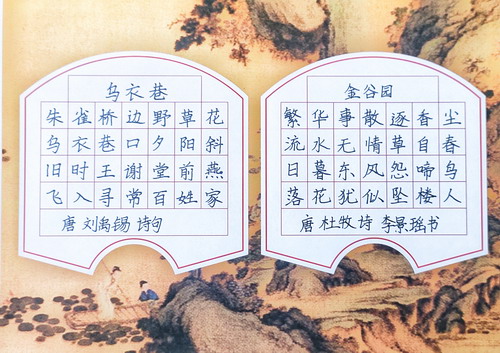 乌衣巷
朱雀桥边野草花
乌衣巷口夕阳斜
旧时王谢堂前燕
飞入寻常百姓家
唐 刘禹锡 诗句
金谷园
繁华事散逐香尘
流水无情草自春
日暮东风怨啼鸟
落花犹似坠楼人
唐 杜牧诗 李景瑶书